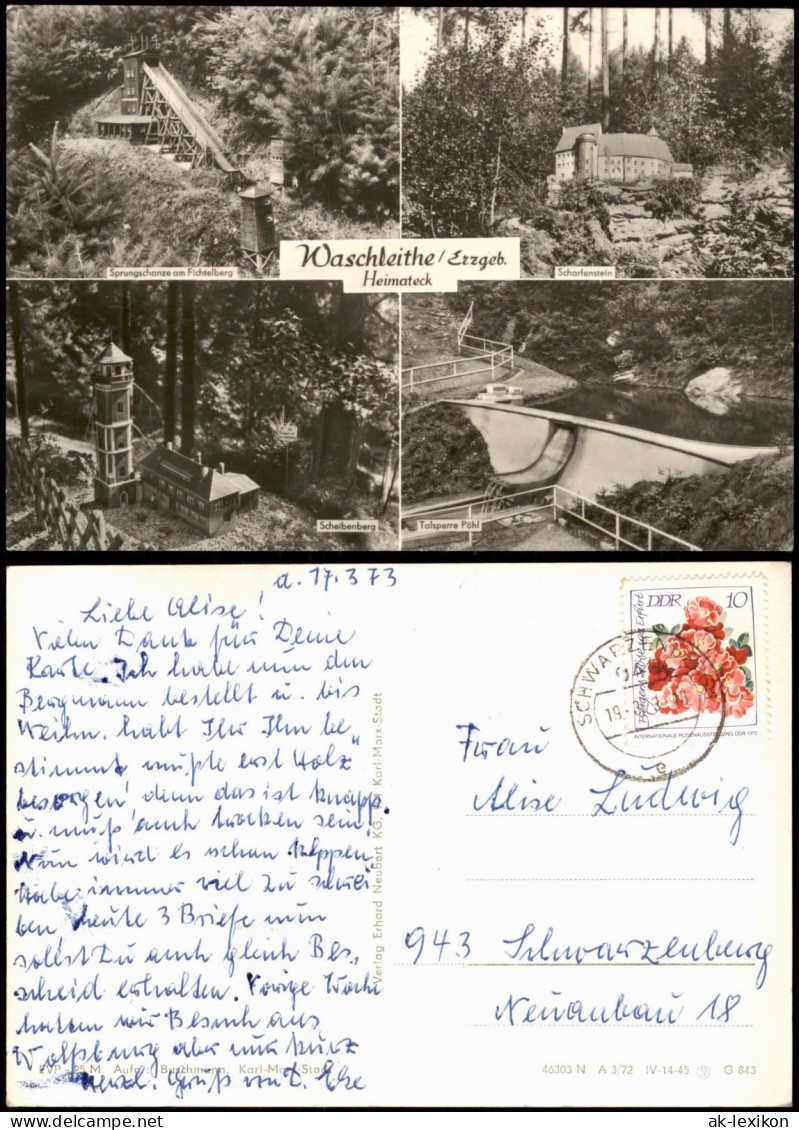 Sprungschanze am Fichtelberg
Scharfenstein
Waschleithe / Erzgeb.
Heimateck
Scheibenberg
Talsperre Pöhl
d. 17.3 73
Liebe Alise!
Vielen Dank für Deine
Karte. Ich habe nun den
Bergmann bestellt u. bis
Weihn. habt Ihr Ihn be„
stimmt mußte erst Holz
besorgen denn das ist knapp
u. muß auch trocken sein.
Nun wird es schon kleppen
habe immer viel zu schrei
ben heute 3 Briefe nun
sollst Du auch gleich Bes„
scheid erhalten. Vorige Woche
hatten wir Besuch aus
Wolfsburg aber nur kurz
Herzl. Gruß von D. Else
EVP -,25 M Aufn.: Buschmann, Karl-Marx-Stadt
Verlag Erhard Neubert KG, Karl-Marx-Stadt
DDR 10
INTERNATIONALE ROSENAUSSTELLUNG DDR 1972
SCHWARZE
19.
Frau
Alise Ludwig
943 Schwarzenberg
Neuanbau 18
46303 N A 3/72 IV-14-45 G 843
ak-lexikon.com